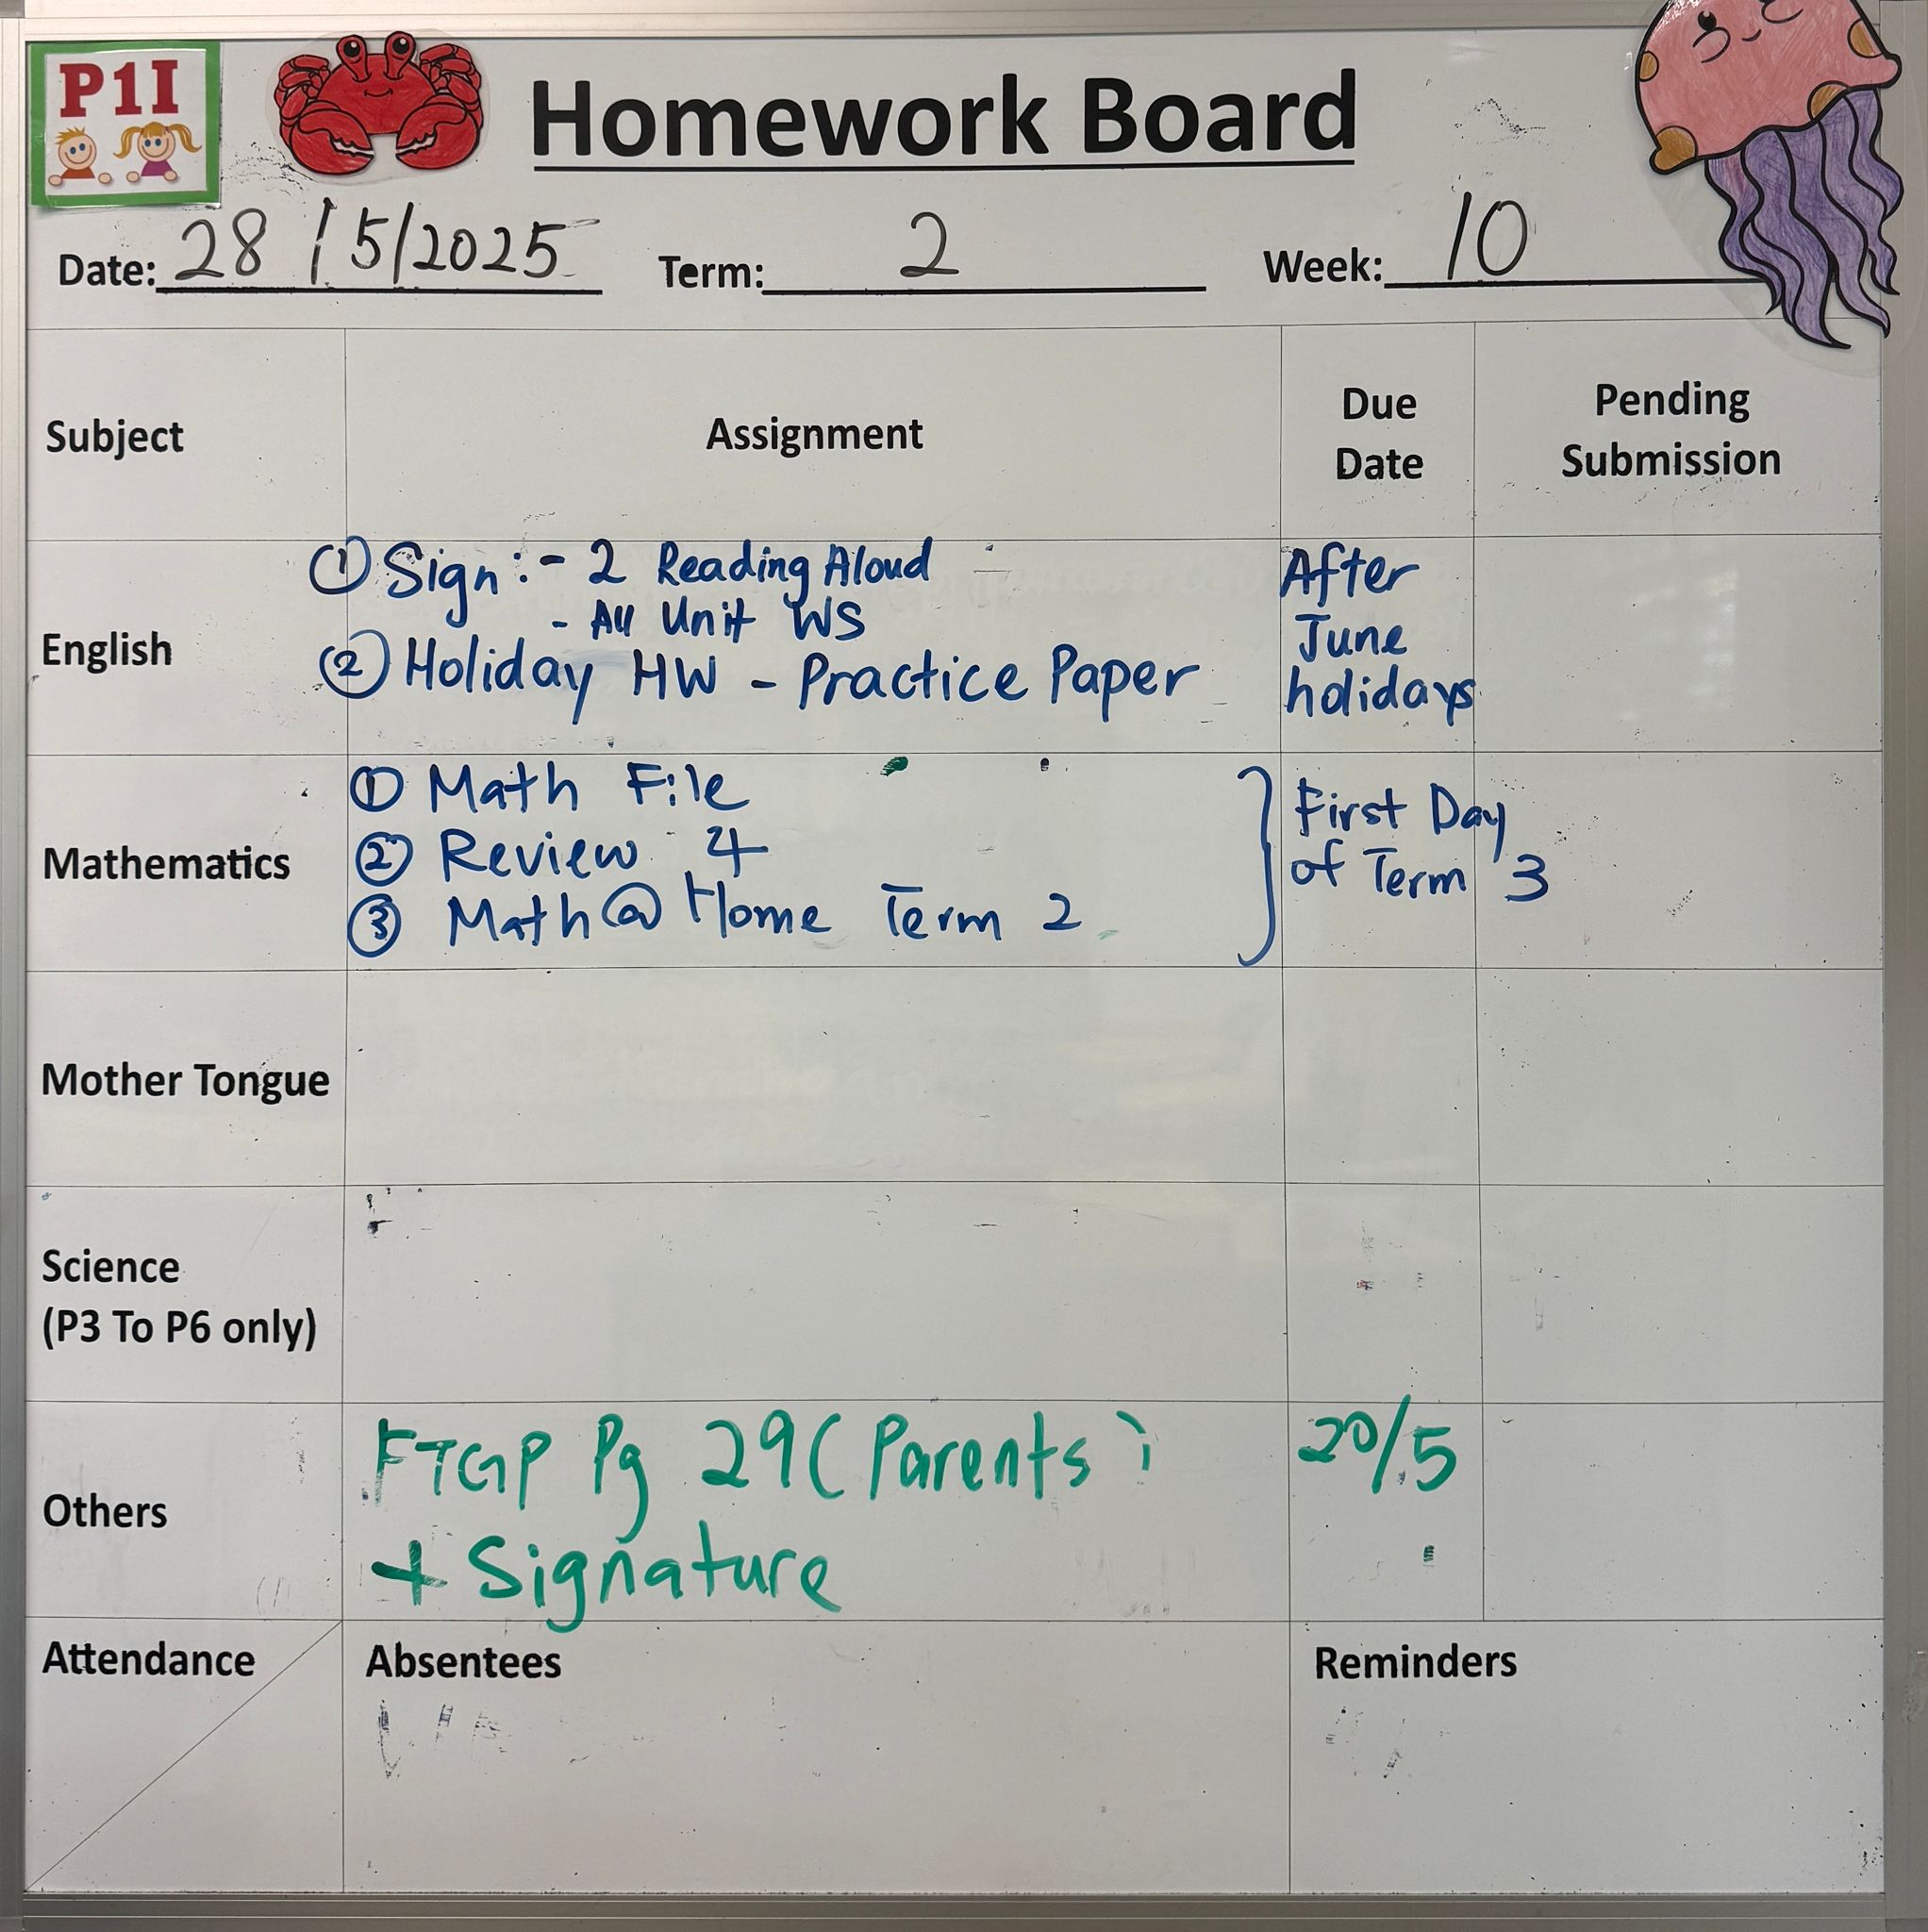 P1I
Homework Board
Date: 28/5/2025 Term: 2 Week: 10
Subject Assignment Due Date Pending Submission
English
① Sign:- 2 Reading Aloud
- All Unit WS
② Holiday HW - Practice Paper
After
June
holidays
Mathematics
① Math File
② Review 4
③ Math @ Home Term 2
First Day
of Term 3
Mother Tongue
Science
(P3 To P6 only)
Others
FTGP Pg 29 (Parents)
+ Signature
20/5
Attendance Absentees Reminders